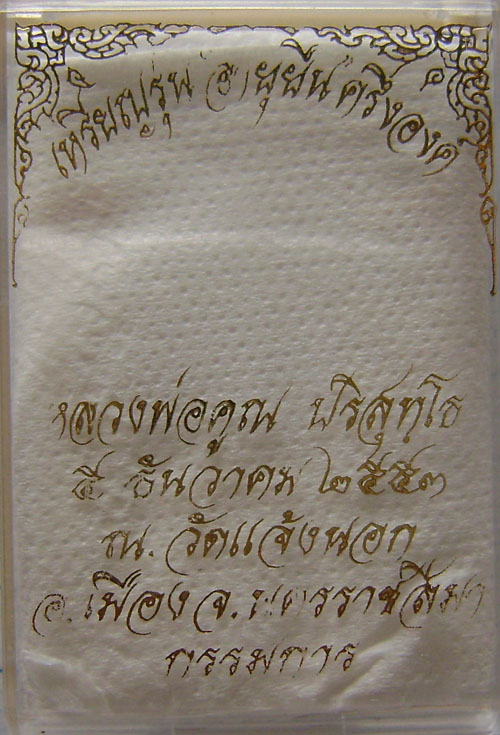 เหรียญรุ่น (อายุยืน) ครึ่งองค์
หลวงพ่อคูณ ปริสุทฺโธ
๕ ธันวาคม ๒๕๕๓
ณ. วัดแจ้งนอก
อ.เมือง จ.นครราชสีมา
กรรมการ